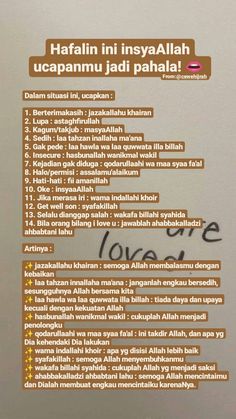 Hafalin ini insyaAllah
ucapanmu jadi pahala!
From:@cewehijrah
Dalam situasi ini, ucapkan :
1. Berterimakasih : jazakallahu khairan
2. Lupa : astaghfirullah
3. Kagum/takjub : masyaAllah
4. Sedih : laa tahzan inallaha ma'ana
5. Gak pede : laa hawla wa laa quwwata illa billah
6. Insecure : hasbunallah wanikmal wakil
7. Kejadian gak diduga : qodarullahi wa maa syaa fa'al
8. Halo/permisi : assalamu'alaikum
9. Hati-hati : fii amanillah
10. Oke : insyaaAllah
11. Jika merasa iri : wama indallahi khoir
12. Get well son : syafakillah
13. Selalu dianggap salah : wakafa billahi syahida
14. Bila orang bilang i love u : jawablah ahabbakalladzi
ahbabtani lahu
are
loved
Artinya :
✨ jazakallahu khairan : semoga Allah membalasmu dengan
kebaikan
✨ laa tahzan innallaha ma'ana : janganlah engkau bersedih,
sesungguhnya Allah bersama kita
✨ laa hawla wa laa quwwata illa billah : tiada daya dan upaya
kecuali dengan kekuatan Allah
✨ hasbunallah wanikmal wakil : cukuplah Allah menjadi
penolongku
✨ qodarullaahi wa maa syaa fa'al : ini takdir Allah, dan apa yg
Dia kehendaki Dia lakukan
✨ wama indallahi khoir : apa yg disisi Allah lebih baik
✨ syafakillah : semoga Allah menyembuhkanmu
✨ wakafa billahi syahida : cukuplah Allah yg menjadi saksi
✨ ahabbakalladzi ahbabtani lahu : semoga Allah mencintaimu
dan Dialah membuat engkau mencintaiku karenaNya.